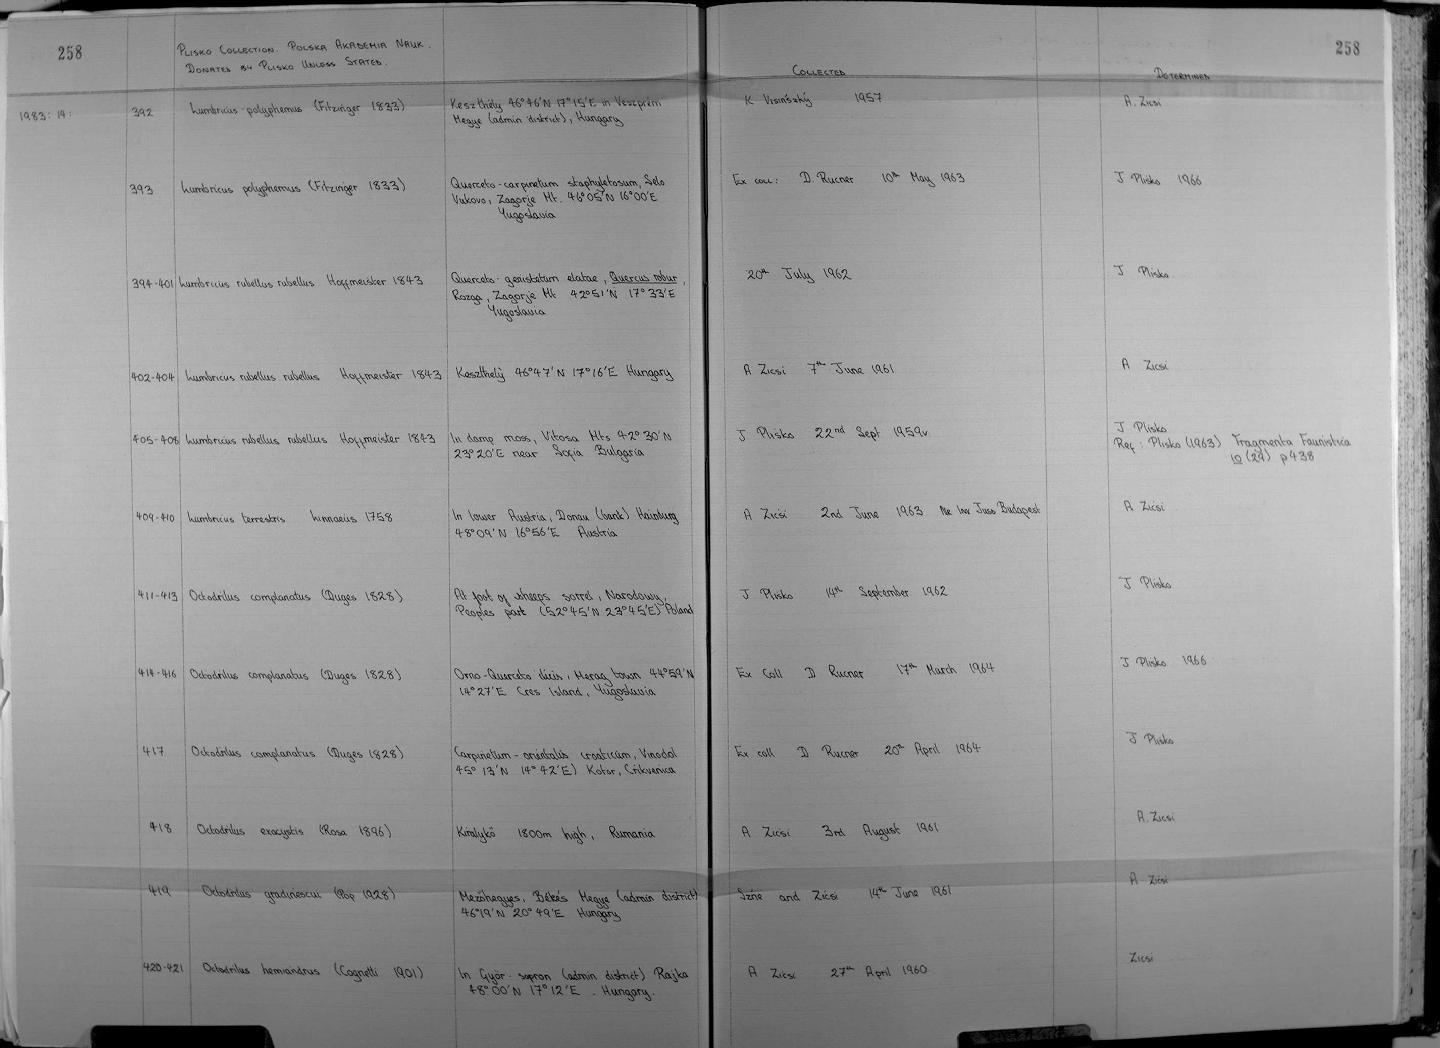 258
PLISKO COLLECTION. POLSKA AKADEMIA NAUK.
DONATED BY PLISKO UNLESS STATED.
COLLECTED
DETERMINED
258
1983: 19:
392 Lumbricus polyphemus (Fitzinger 1833) Keszthély 46°46'N 17°15'E in Veszprém K 1957 A. Zicsi
Megye (admin district), Hungary
393 Lumbricus polyphemus (Fitzinger 1833) Querceto-carpinetum staphyletosum, Selo Ex coll: D. Rucner 10th May 1963 J Plisko 1966
Vukovo, Zagorje Mt. 46°05'N 16°00'E
Yugoslavia
394-401 Lumbricus rubellus rubellus Hoffmeister 1843 Querceto-genistetum elatae, Quercus robur, 20th July 1962 J Plisko
Rozga, Zagorje Mt 42°51'N 17°33'E
Yugoslavia
402-404 Lumbricus rubellus rubellus Hoffmeister 1843 Keszthely 46°47'N 17°16'E Hungary A Zicsi 7th June 1961 A Zicsi
405-408 Lumbricus rubellus rubellus Hoffmeister 1843 In damp moss, Vitosa Mts 42°30'N J Plisko 22nd Sept 1959 J Plisko
23°20'E near Sofia Bulgaria Ref: Plisko (1963) Fragmenta Faunistica
10 (29) p438
409-410 Lumbricus terrestris Linnaeus 1758 In lower Austria, Donau (bank) Hainburg A Zicsi 2nd June 1963 Budapest A Zicsi
48°09'N 16°56'E Austria
411-413 Octodrilus complanatus (Duges 1828) At foot of sheeps sorrel, Narodowy, J Plisko 14th September 1962 J Plisko
Peoples park (52°45'N 23°45'E) Poland
414-416 Octodrilus complanatus (Duges 1828) Orno-Querceto ilicis, Merag town 44°59'N Ex Coll D Rucner 17th March 1964 J Plisko 1966
14°27'E Cres Island, Yugoslavia
417 Octodrilus complanatus (Duges 1828) Carpinetum-orientalis croaticum, Vinodol Ex coll D Rucner 20th April 1964 J Plisko
45°13'N 14°42'E) Kotor, Crikvenica
418 Octodrilus exacystis (Rosa 1896) Királykö 1800m high, Rumania A Zicsi 3rd August 1961 A. Zicsi
419 Octodrilus gradinescui (Pop 1928) Mezőhegyes, Békés Megye (admin district) and Zicsi 14th June 1961 A Zicsi
46°19'N 20°49'E Hungary
420-421 Octodrilus hemiandrus (Cognetti 1901) In Györ-sopron (admin district) Rajka A Zicsi 27th April 1960 Zicsi
48°00'N 17°12'E. Hungary.